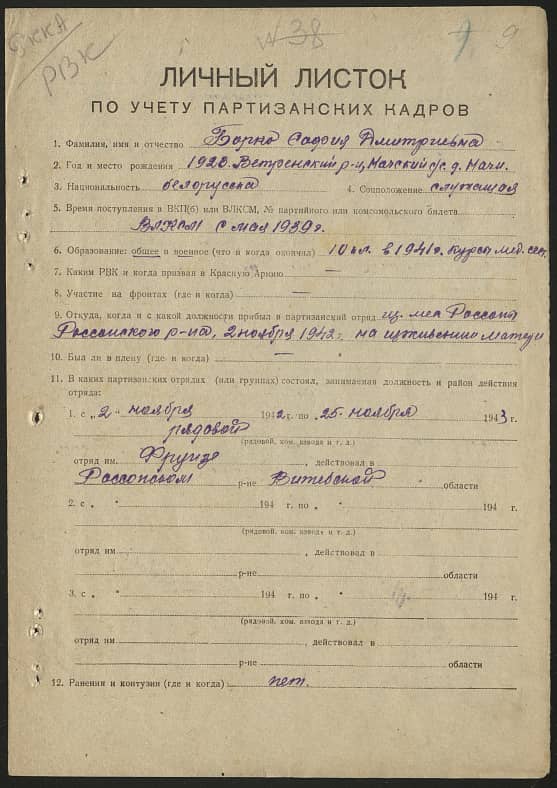 РККА
РВК
№ 38
9
ЛИЧНЫЙ ЛИСТОК
ПО УЧЕТУ ПАРТИЗАНСКИХ КАДРОВ
1. Фамилия, имя и отчество Борно София Дмитриевна
2. Год и место рождения 1923. Ветренский р-н, Мачский с/с. д. Мачи.
3. Национальность белорусска 4. Соцположение служащая
5. Время поступления в ВКП(б) или ВЛКСМ, № партийного или комсомольского билета
ВЛКСМ с мая 1939 г.
6. Образование: общее и военное (что и когда окончил) 10 кл. в 1941 г. курсы мед. сес.
7. Каким РВК и когда призван в Красную Армию —
8. Участие на фронтах (где и когда) —
9. Откуда, когда и с какой должности прибыл в партизанский отряд из мес Россоны
Россонского р-на, 2 ноября 1942 г. на иждивении матери
10. Был ли в плену (где и когда) —
11. В каких партизанских отрядах (или группах) состоял, занимаемая должность и район действия
отряда:
1. с „2" ноября 1942 г. по „25" ноября 1943 г.
рядовой
(рядовой, ком. взвода и т. д.)
отряд им. Фрунзе, действовал в
Россонском р-не Витебской области
2. с „ " 194 г. по „ " 194 г.
(рядовой, ком. взвода и т. д.)
отряд им. , действовал в
р-не области
3. с „ " 194 г. по „ " 194 г.
(рядовой, ком. взвода и т. д.)
отряд им. , действовал в
р-не области
12. Ранения и контузии (где и когда) нет.